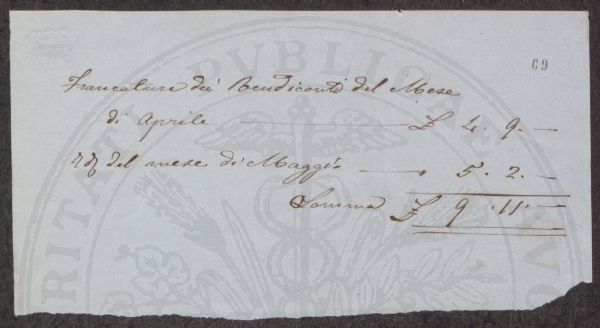 69
Francature dei Rendiconti del Mese
di Aprile £ 4. 9. —
Id del mese di Maggio " 5. 2. —
Somma £ 9. 11. —
PVBLICAE